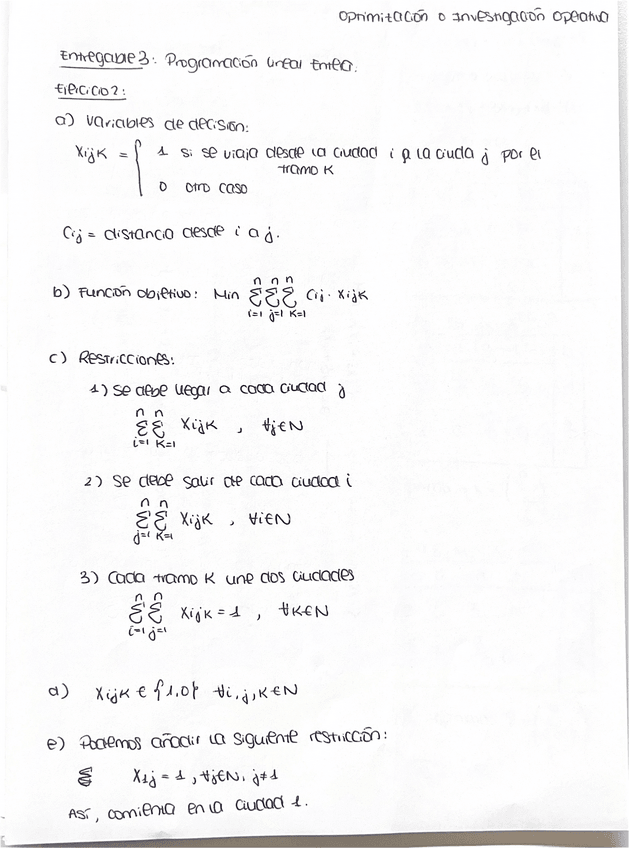 Optimitación o Investigación Operativa
Entregable 3: Programación Lineal Entera.
Ejercicio 2:
a) Variables de decisión:
Xijk = { 1 si se viaja desde la ciudad i a la ciuda j por el
tramo K
0 otro caso
Cij = distancia desde i a j.
b) Función objetivo: Min Σ(i=1, n) Σ(j=1, n) Σ(K=1, n) Cij · Xijk
c) Restricciones:
1) Se debe llegar a cada ciudad j
Σ(i=1, n) Σ(K=1, n) Xijk , ∀j∈N
2) Se debe salir de cada ciudad i
Σ(j=1, n) Σ(K=1, n) Xijk , ∀i∈N
3) Cada tramo K une dos ciudades
Σ(i=1, n) Σ(j=1, n) Xijk = 1 , ∀K∈N
d) Xijk ∈ {1,0} ∀i,j,K∈N
e) Podemos añadir la siguiente restricción:
Σ X1j = 1, ∀j∈N, j≠1
Así, comienza en la ciudad 1.